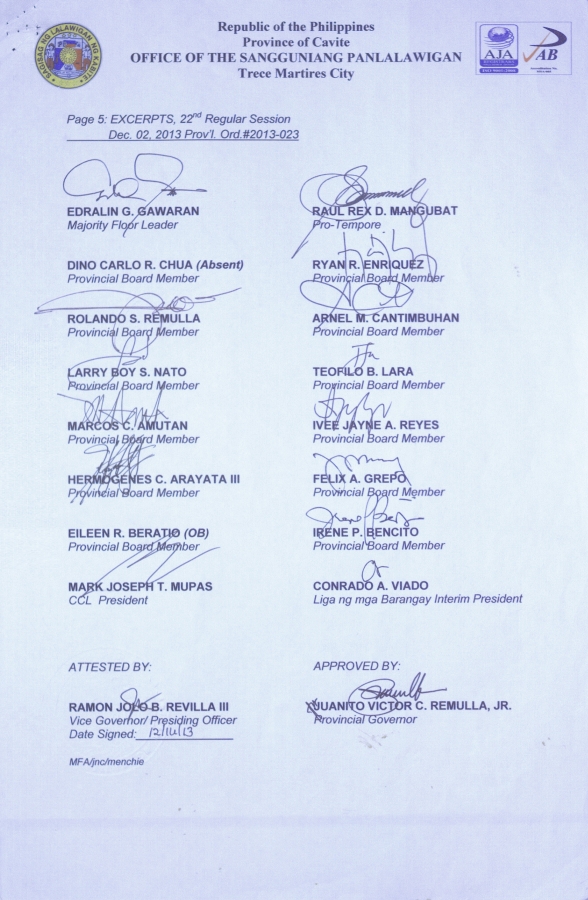 Republic of the Philippines
Province of Cavite
OFFICE OF THE SANGGUNIANG PANLALAWIGAN
Trece Martires City
AJA
JAB
Page 5: EXCERPTS, 22nd Regular Session
Dec. 02, 2013 Prov'l. Ord.#2013-023
EDRALIN G. GAWARAN
Majority Floor Leader
RAUL REX D. MANGUBAT
Pro-Tempore
DINO CARLO R. CHUA (Absent)
Provincial Board Member
RYAN R. ENRIQUEZ
Provincial Board Member
ROLANDO S. REMULLA
Provincial Board Member
ARNEL M. CANTIMBUHAN
Provincial Board Member
LARRY BOY S. NATO
Provincial Board Member
TEOFILO B. LARA
Provincial Board Member
MARCOS C. AMUTAN
Provincial Board Member
IVEE JAYNE A. REYES
Provincial Board Member
HERMOGENES C. ARAYATA III
Provincial Board Member
FELIX A. GREPO
Provincial Board Member
EILEEN R. BERATIO (OB)
Provincial Board Member
IRENE P. BENCITO
Provincial Board Member
MARK JOSEPH T. MUPAS
CCL President
CONRADO A. VIADO
Liga ng mga Barangay Interim President
ATTESTED BY:
RAMON JOLO B. REVILLA III
Vice Governor/ Presiding Officer
Date Signed:
APPROVED BY:
JUANITO VICTOR C. REMULLA, JR.
Provincial Governor
MFA/jnc/menchie